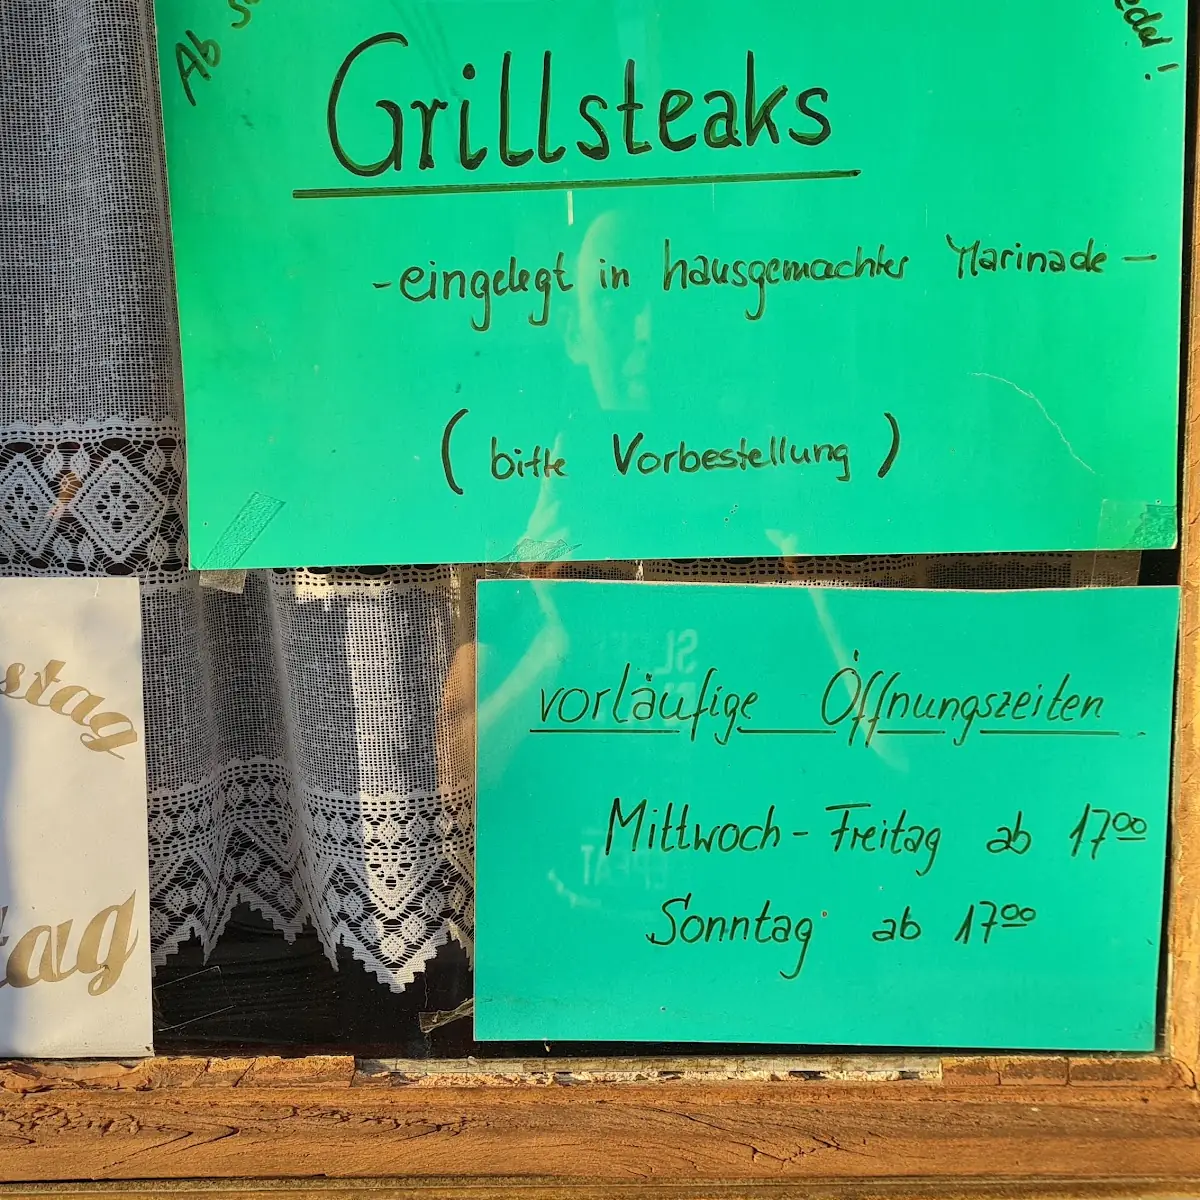 Ab
Grillsteaks
-eingelegt in hausgemachter Marinade-
(bitte Vorbestellung)
vorläufige Öffnungszeiten
Mittwoch - Freitag ab 17⁰⁰
Sonntag ab 17⁰⁰